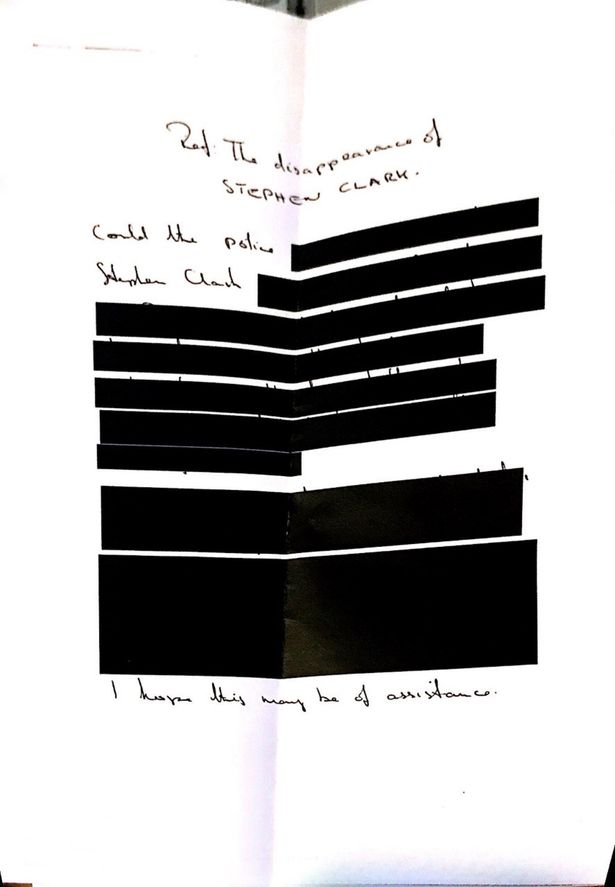 Ref. The disappearance of
STEPHEN CLARK.
Could the police
Stephen Clark
I hope this may be of assistance.